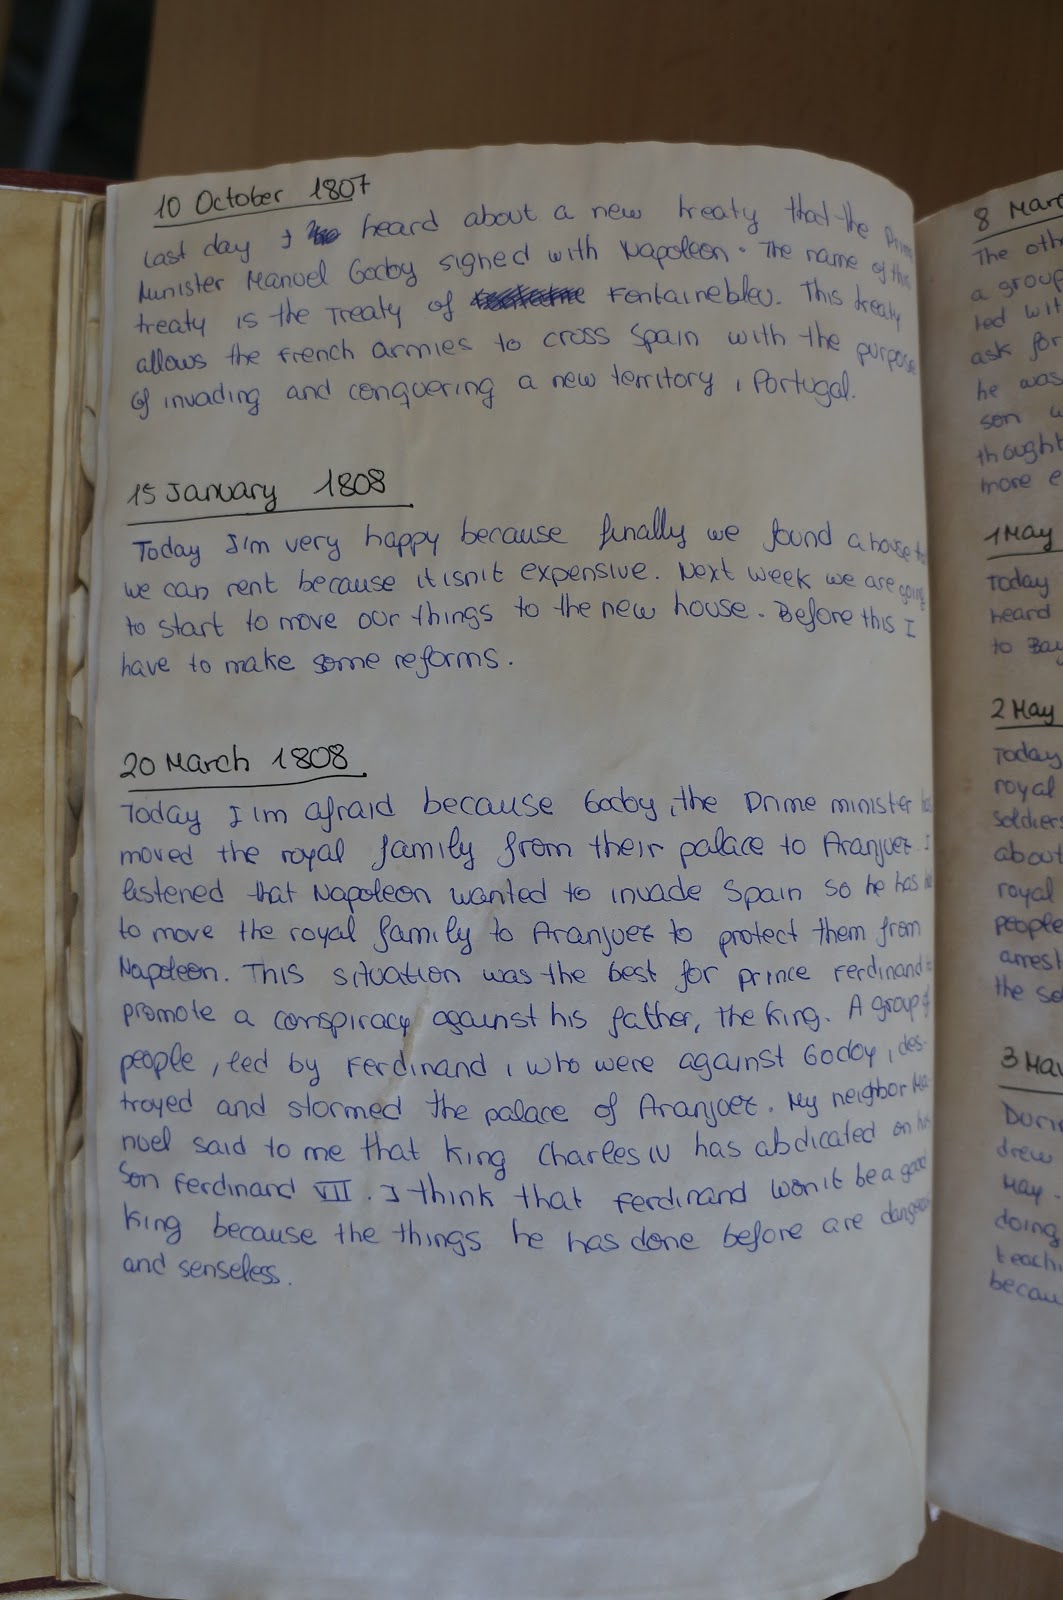 10 October 1807
Last day I heard about a new treaty that the Prime
Minister Manuel Godoy signed with Napoleon. The name of this
treaty is the Treaty of Fontainebleu. This treaty
allows the French armies to cross Spain with the purpose
of invading and conquering a new territory, Portugal.
15 January 1808
Today I'm very happy because finally we found a house to
we can rent because it isn't expensive. Next week we are going
to start to move our things to the new house. Before this I
have to make some reforms.
20 March 1808
Today I'm afraid because Godoy, the Prime minister has
moved the royal family from their palace to Aranjuez. I
listened that Napoleon wanted to invade Spain so he has
to move the royal family to Aranjuez to protect them from
Napoleon. This situation was the best for prince Ferdinand to
promote a conspiracy against his father, the king. A group of
people, led by Ferdinand, who were against Godoy, des-
troyed and stormed the palace of Aranjuez. My neighbor Ma-
nuel said to me that king Charles IV has abdicated on his
son Ferdinand VII. I think that Ferdinand won't be a good
king because the things he has done before are dangerous
and senseless.
8 Marc
The oth
a group
led wit
ask for
he was
son
thought
more e
1 May
Today
heard
to Bay
2 May
Today
royal
soldiers
about
royal
people
arrest
the se
3 May
Durin
drew
May
doing
teachi
becau